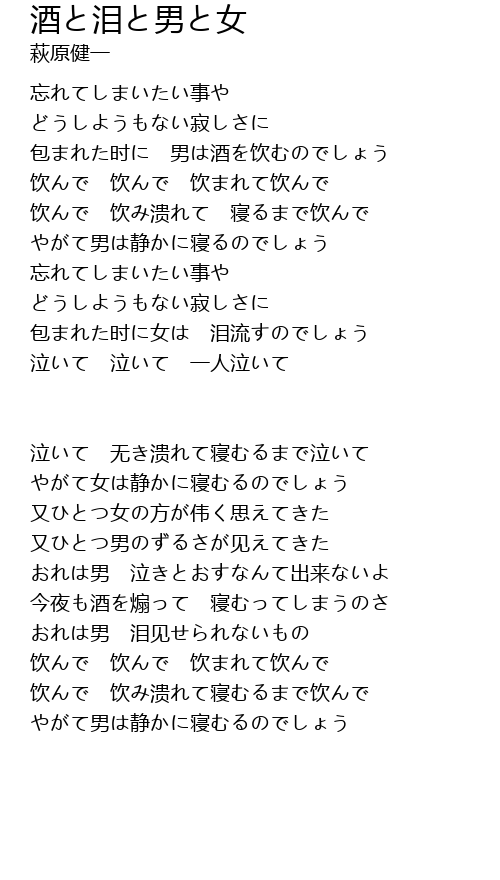 酒と泪と男と女
萩原健一
忘れてしまいたい事や
どうしようもない寂しさに
包まれた时に　男は酒を饮むのでしょう
饮んで　饮んで　饮まれて饮んで
饮んで　饮み溃れて　寝るまで饮んで
やがて男は静かに寝るのでしょう
忘れてしまいたい事や
どうしようもない寂しさに
包まれた时に女は　泪流すのでしょう
泣いて　泣いて　一人泣いて
泣いて　无き溃れて寝むるまで泣いて
やがて女は静かに寝むるのでしょう
又ひとつ女の方が伟く思えてきた
又ひとつ男のずるさが见えてきた
おれは男　泣きとおすなんて出来ないよ
今夜も酒を煽って　寝むってしまうのさ
おれは男　泪见せられないもの
饮んで　饮んで　饮まれて饮んで
饮んで　饮み溃れて寝むるまで饮んで
やがて男は静かに寝むるのでしょう